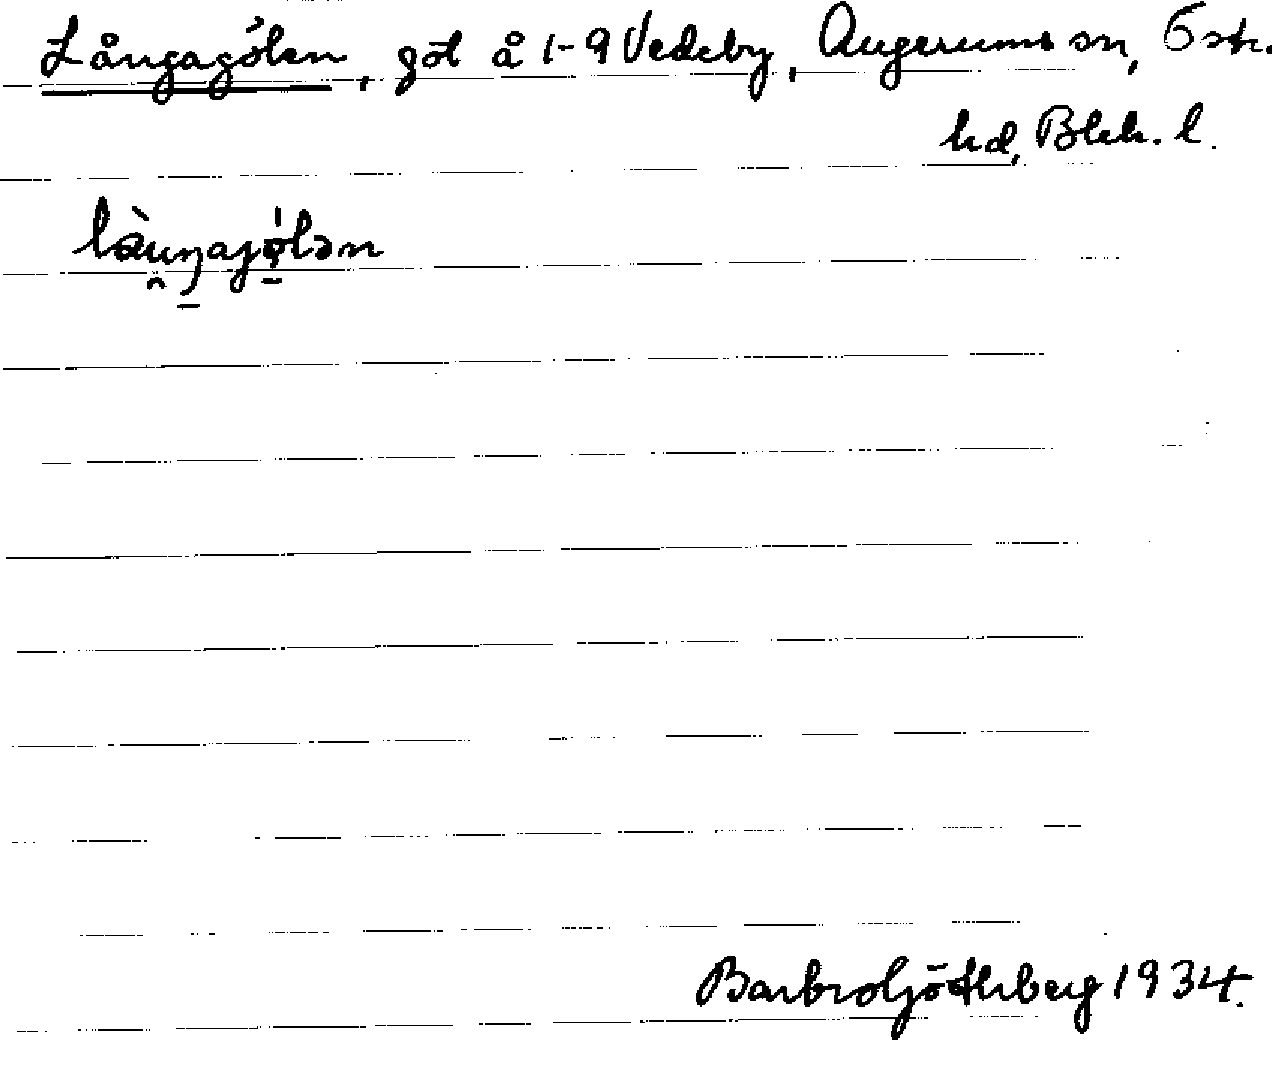 Långagölen, göl å 1-9 Vedeby, Augerums sn, Östr.
hd, Blek. l.
làu̯ŋajø̀lən
Barbro Götherberg 1934.